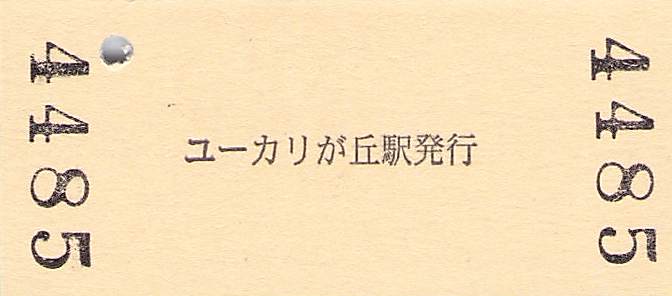 4485
ユーカリが丘駅発行
4485